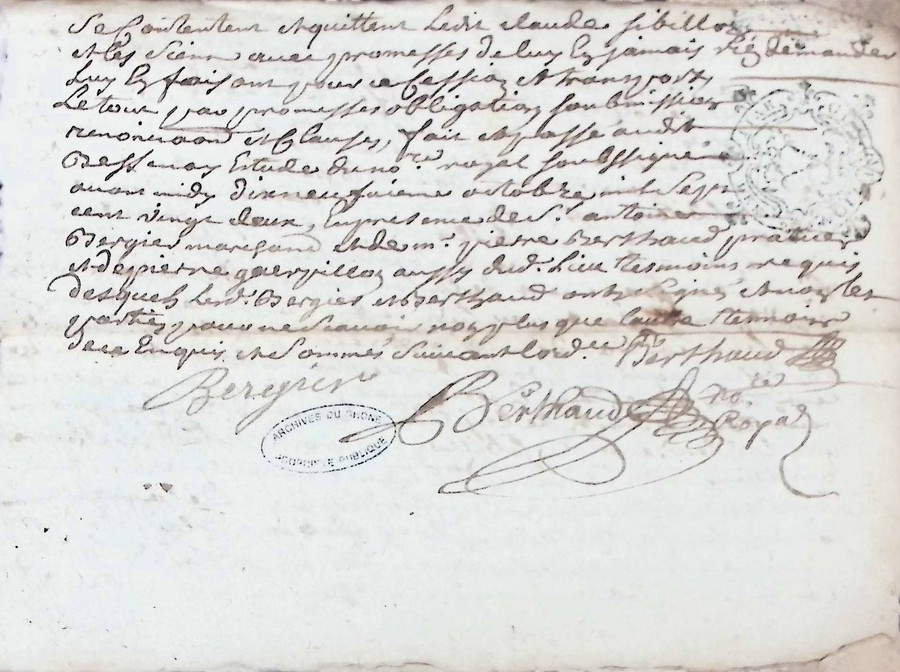 Se Contentent Aquittent Ledit claude sibillon
Et les Siens avec promesses de luy En jamais Rien demander
Luy En faisant pour ce Cession Et transport
Le tout par promesses obligation soubmission
renonciaon Et Clauses, fait Et passé audit
Bessenay Estude du no.re royal soubssigné
avant midy dixneufvieme octobre mil Sept
cent vingt deux, En presence de S.r antoine
Bergier marchand Et de m.e pierre Berthaud praticien
Et de pierre guerpillon aussy dud. Lieu tesmoins requis
desquels lesd. Bergier Et Berthaud ont signé Et non les
parties pour ne scavoir non plus que lautre tesmoin
de ce Enquis Et Sommés suivant lord.ce Berthaud
Bergier
Berthaud
no.re
Royal
ARCHIVES DU RHONE
PROPRIÉTÉ PUBLIQUE